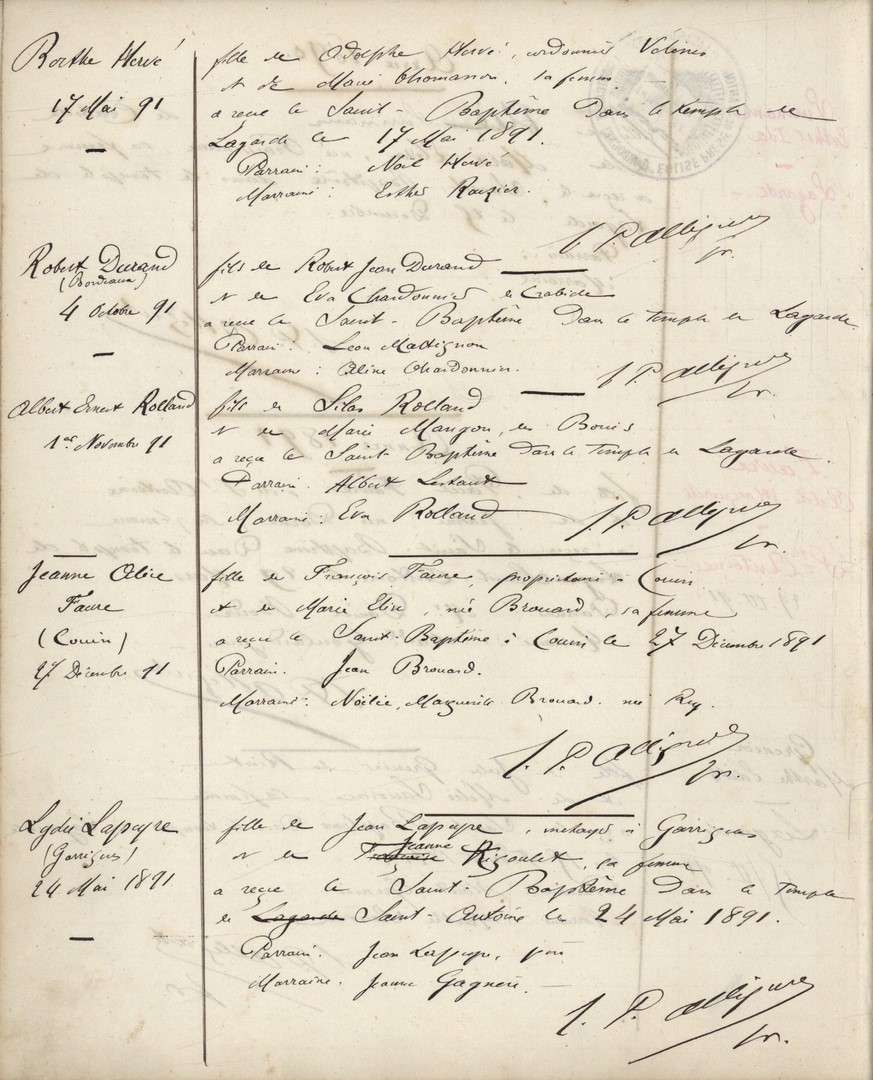 Berthe Hervé
17 Mai 91
fille de Adolphe Hervé, cordonnier Velines
et de Marie Thomanon, sa femme
a reçu le Saint-Baptême Dans le temple de
Lagarde le 17 Mai 1891.
Parrain: Noël Hervé
Marraine: Esther Rouzier.
J. P. Allégret
pr.
Robert Durand
(Bordeaux)
4 Octobre 91
fils de Robert Jean Durand
et de Eva Chardonnier de
a reçu le Saint-Baptême Dans le temple de Lagarde.
Parrain: Léon Mattignon
Marraine: Céline Chardonnier.
J. P. Allégret
pr.
Albert Ernest Rolland
1er Novembre 91
fils de Silas Rolland
et de Marie Mangon, de Bouis
a reçu le Saint-Baptême Dans le Temple de Lagarde.
Parrain: Albert
Marraine: Eva Rolland
J. P. Allégret
pr.
Jeanne Alice
Faure
(Couin)
27 Décembre 91
fille de François Faure, propriétaire à Couin
et de Marie Elise, née Brouard, sa femme
a reçu le Saint-Baptême à Couin le 27 Décembre 1891
Parrain. Jean Brouard.
Marraine: Noélie, Marguerite Brouard. née Rey.
J. P. Allégret
pr.
Lydie Lapeyre
(Garrigues)
24 Mai 1891
fille de Jean Lapeyre, métayer à Garrigues
et de Françoise Jeanne Rigoulet, sa femme
a reçu le Saint-Baptême Dans le Temple
de Lagarde Saint-Antoine le 24 Mai 1891.
Parrain. Jean Lapeyre, père
Marraine. Jeanne
J. P. Allégret
pr.